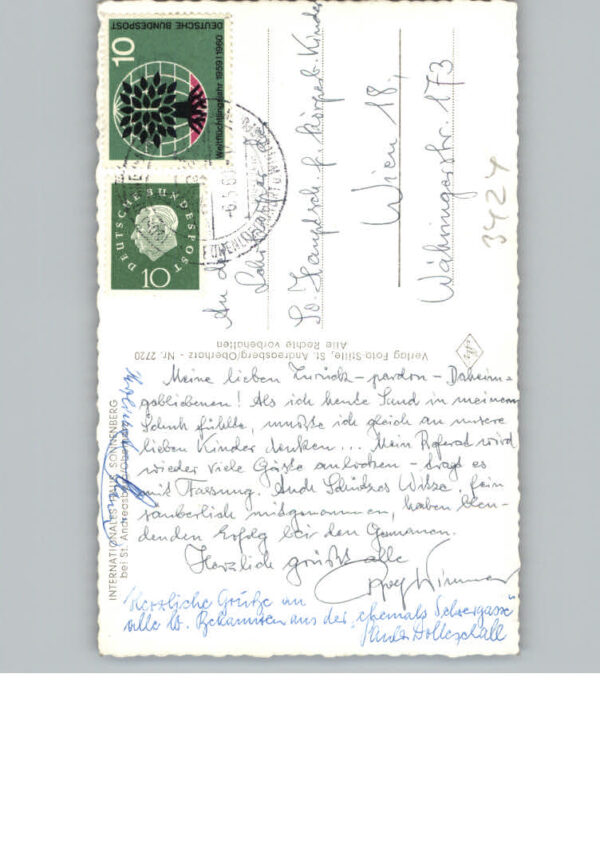 DEUTSCHE BUNDESPOST
10
Weltflüchtlingsjahr 1959/1960
DEUTSCHE BUNDESPOST
10
An die
Lehrkörper der
So. Hauptsch. f. körperb. Kinder
Wien 18,
Währingerstr. 173
3424
Verlag Foto-Stille, St. Andreasberg/Oberharz - Nr. 2720
Alle Rechte vorbehalten
INTERNATIONALES HAUS SONNENBERG
bei St. Andreasberg/Oberharz
Meine lieben Zurück - pardon - Daheim=
gebliebenen! Als ich heute Sand in meinem
Schuh fühlte, mußte ich gleich an unsere
lieben Kinder denken... Mein Referat wird
wieder viele Gäste anlocken - tragt es
mit Fassung. Auch Witze, fein
säuberlich mitgenommen, haben blen-
denden Erfolg bei den Germanen.
Herzlich grüßt alle
Herzliche Grüße an
alle lb. Bekannten aus der "ehemals